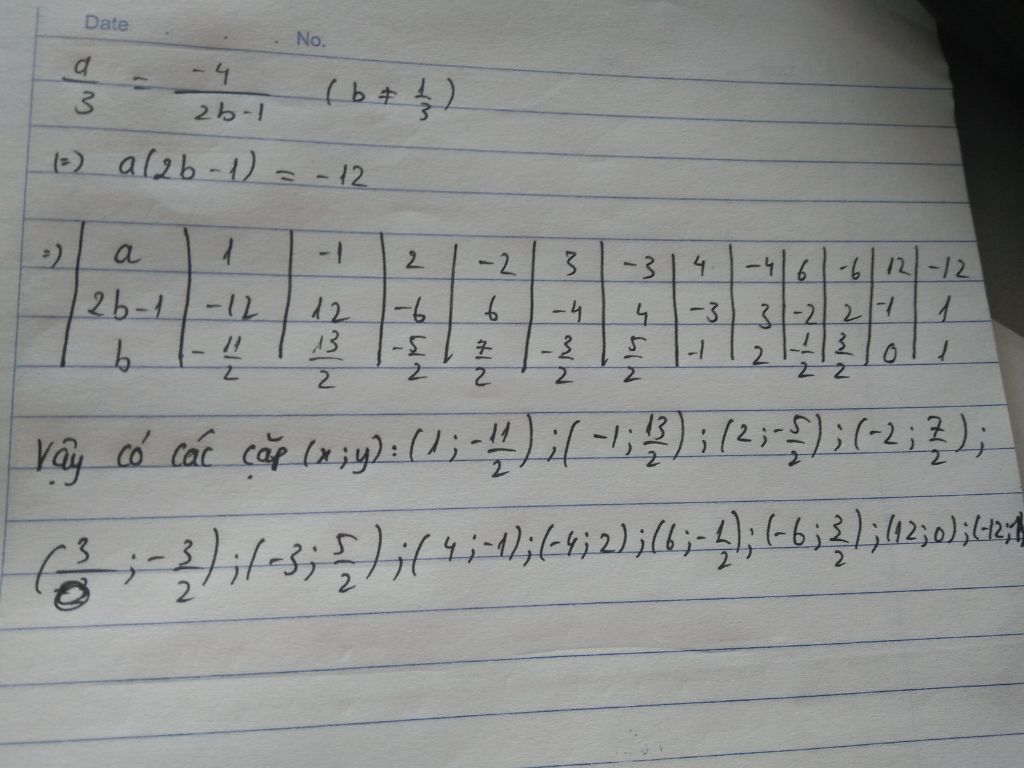 Date . . . No.
a/3 = -4/(2b-1) (b ≠ 1/3)
(=) a(2b-1) = -12
=) | a | 1 | -1 | 2 | -2 | 3 | -3 | 4 | -4 | 6 | -6 | 12 | -12
2b-1 | -12 | 12 | -6 | 6 | -4 | 4 | -3 | 3 | -2 | 2 | -1 | 1
b | -11/2 | 13/2 | -5/2 | 7/2 | -3/2 | 5/2 | -1 | 2 | -1/2 | 3/2 | 0 | 1
Vậy có các cặp (x;y): (1; -11/2); (-1; 13/2); (2; -5/2); (-2; 7/2);
(3; -3/2); (-3; 5/2); (4; -1); (-4; 2); (6; -1/2); (-6; 3/2); (12; 0); (-12; 1)